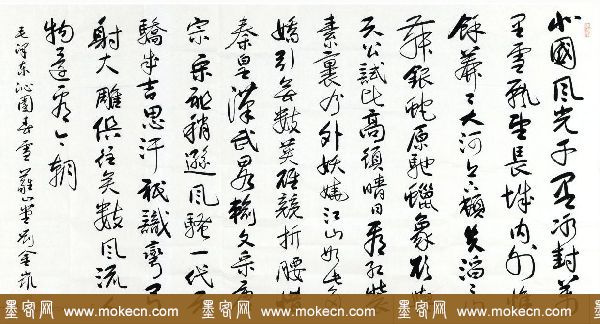 北國風光千里冰封萬
里雪飄望長城内外惟
餘莽莽大河上下頓失滔滔山
舞銀蛇原馳蠟象欲
天公試比高須晴日看紅裝
素裹分外妖嬈江山如此多
嬌引無數英雄競折腰惜
秦皇漢武略輸文采唐
宗宋祖稍遜風騷一代天
驕成吉思汗祗識彎弓
射大雕俱往矣數風流人
物還看今朝
毛澤東沁園春雪
墨客网 www.mokecn.com 墨客网 www.mokecn.com 墨客网 www.mokecn.com